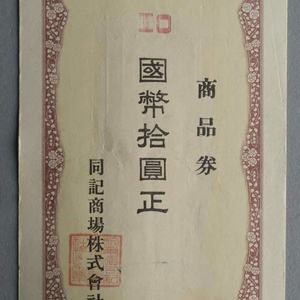 10
商品券
國幣拾圓正
同記商場株式會社